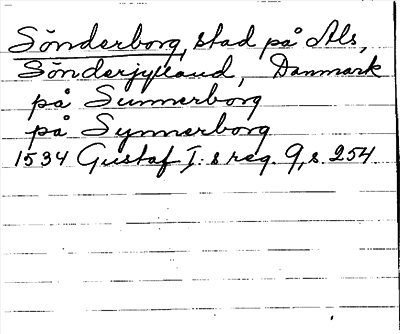 Sönderborg, stad på Als,
Sönderjylland, Danmark
på Sunnerborg
på Synnerborg
1534 Gustaf I:s reg. 9, s. 254